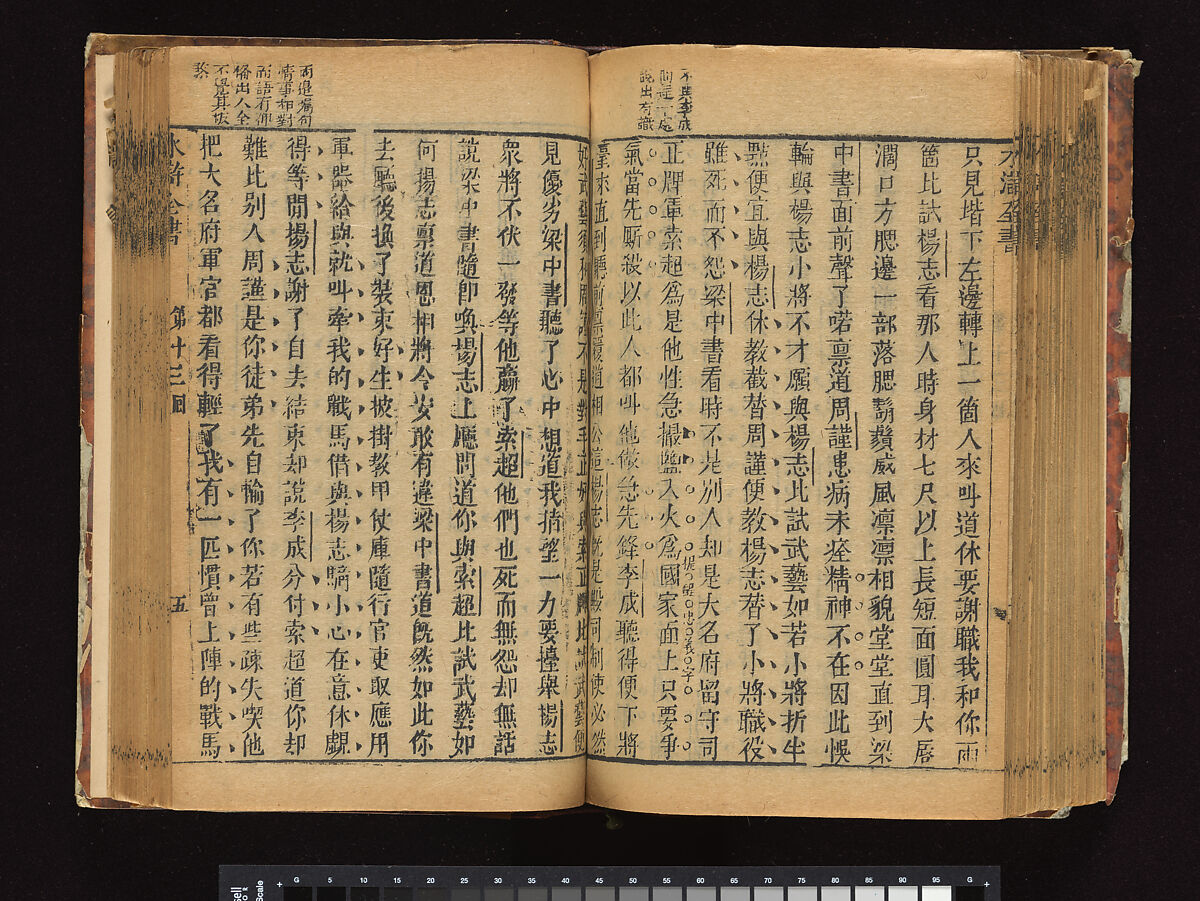 水滸全書
不與李成
說出有識
只見堦下左邊轉上一箇人來叫道休要謝職我和你兩
箇比試楊志看那人時身材七尺以上長短面圓耳大唇
濶口方腮邊一部落腮鬍鬚威風凛凛相貌堂堂直到梁
中書面前聲了喏禀道周謹患病未痊精神不在因此悞
輸與楊志小將不才願與楊志比試武藝如若小將折半
點便宜與楊志休教截替周謹便教楊志替了小將職役
雖死而不怨梁中書看時不是別人却是大名府留守司
正牌軍索超爲是他性急撮鹽入火爲國家面上只要爭
提醒忠義字
氣當先厮殺以此人都叫他做急先鋒李成聽得便下將
臺來直到廳前禀覆道相公這楊志既是殿司制使必然
好武藝須和周謹不是對手正好與索正牌比試武藝便
見優劣梁中書聽了心中想道我指望一力要擡舉楊志
衆將不伏一發等他贏了索超他們也死而無怨却無話
說梁中書隨即喚楊志上廳問道你與索超比試武藝如
何楊志禀道恩相將令安敢有違梁中書道既然如此你
去廳後換了裝束好生披掛教甲仗庫隨行官吏取應用
軍器給與就叫牽我的戰馬借與楊志騎小心在意休覷
得等閒楊志謝了自去結束却說李成分付索超道你却
難比別人周謹是你徒弟先自輸了你若有些疎失喫他
把大名府軍官都看得輕了我有一匹慣曾上陣的戰馬
情事相對
不覺其板
水滸全書 第十三回 五
G 5 10 15 20 25 30 35 40 45 50 55 60 65 70 75 80 85 90 95 G
Scale